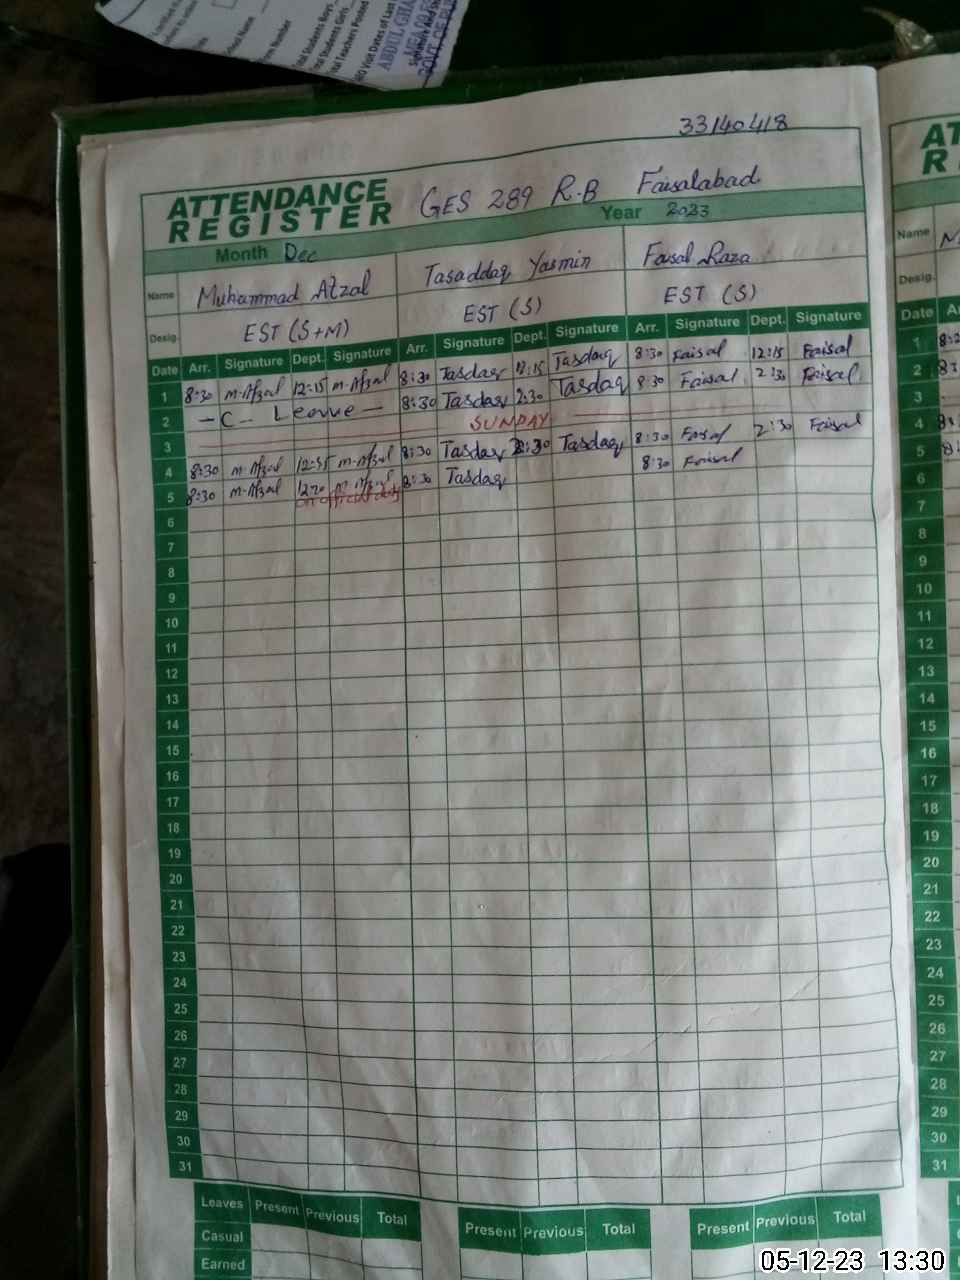 al Students Boys
al Students Girls
al Teachers Posted
Visit Dates of Last
ABDUL GHA
33140418
ATTENDANCE REGISTER GES 289 R.B Faisalabad
Month Dec Year 2023
Name Muhammad Afzal Tasaddaq Yasmin Faisal Raza
Desig. EST (S+M) EST (S) EST (S)
Date Arr. Signature Dept. Signature Arr. Signature Dept. Signature Arr. Signature Dept. Signature
1 8:30 M-Afzal 12:15 M-Afzal 8:30 Tasdaq 12:15 Tasdaq 8:30 Faisal 12:15 Faisal
2 - C - Leave - 8:30 Tasdaq 2:30 Tasdaq 8:30 Faisal 2:30 Faisal
3 SUNDAY
4 8:30 M-Afzal M-Afzal 8:30 Tasdaq 2:30 Tasdaq 8:30 Faisal 2:30 Faisal
5 8:30 M-Afzal M-Afzal 8:30 Tasdaq 8:30 Faisal
on official duty
6
7
8
9
10
11
12
13
14
15
16
17
18
19
20
21
22
23
24
25
26
27
28
29
30
31
Leaves Present Previous Total Present Previous Total Present Previous Total
Casual
Earned
AT
R
Name
Desig.
Date
1
2
3
4
5
6
7
8
9
10
11
12
13
14
15
16
17
18
19
20
21
22
23
24
25
26
27
28
29
30
31
05-12-23 13:30